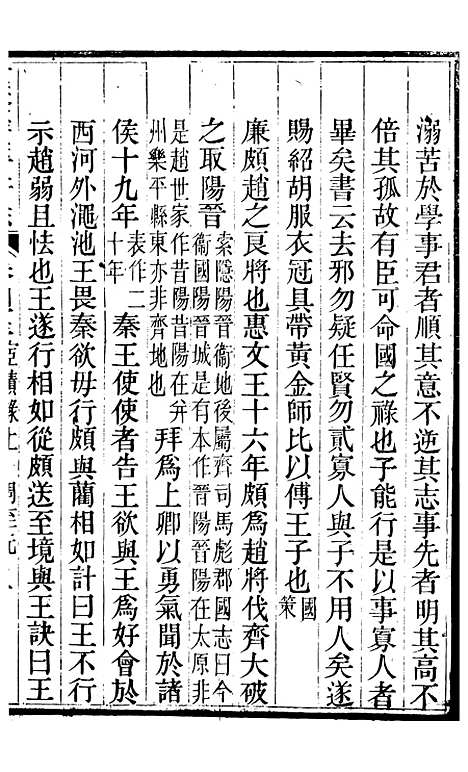 溺苦於學事君者順其意不逆其志事先者明其高不
倍其孤故有臣可命國之祿也子能行是以事寡人者
畢矣書云去邪勿疑任賢勿貳寡人與子不用人矣遂
賜紹胡服衣冠具帶黃金師比以傅王子也國策
廉頗趙之良將也惠文王十六年頗爲趙將伐齊大破
之取陽晉索隱陽晉衞地後屬齊司馬彪郡國志曰今衞國陽晉城是有本作晉陽晉陽在太原非
是趙世家作昔陽昔陽在幷州樂平縣東亦非齊地也拜爲上卿以勇氣聞於諸
侯十九年表作二十年秦王使使者告王欲與王爲好會於
西河外澠池王畏秦欲毋行頗與藺相如計曰王不行
示趙弱且怯也王遂行相如從頗送至境與王訣曰王